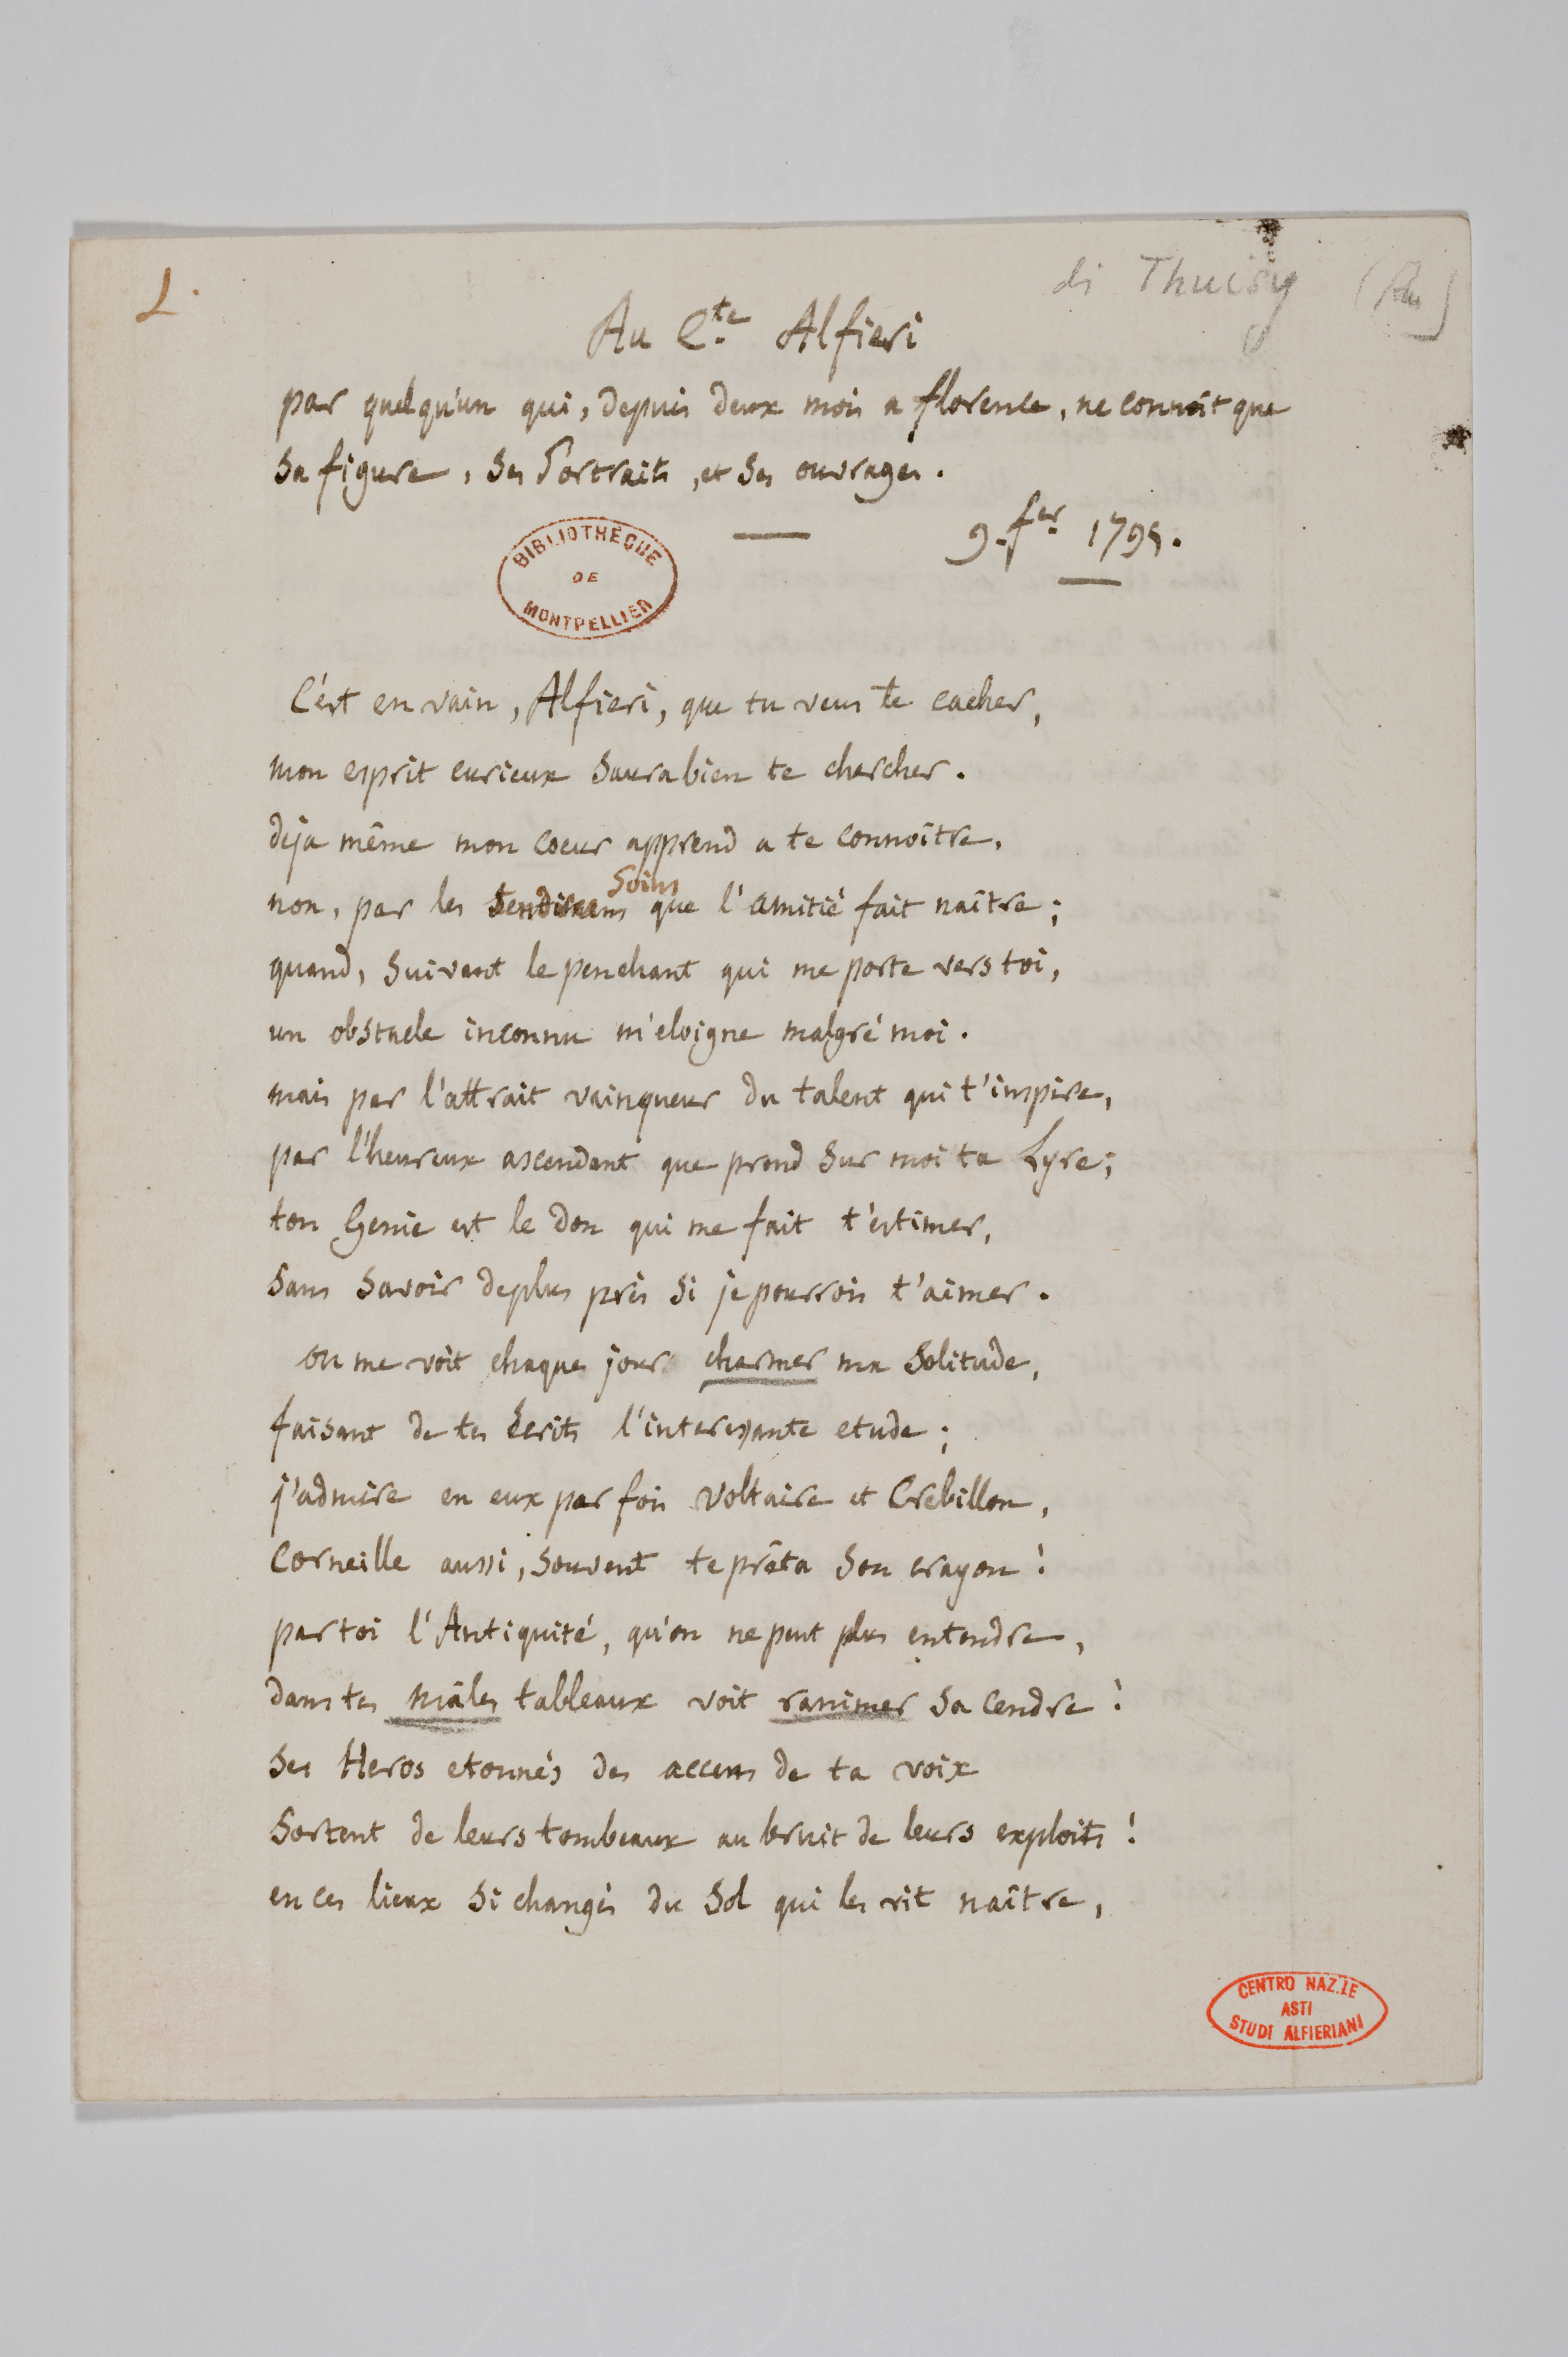 1.
di Thuisy
Au C.te Alfieri
par quelqu'un qui, depuis deux mois a florence, ne connoit que
sa figure, ses Portraits, et ses ouvrages.
9. fer 1795.
BIBLIOTHÈQUE
DE
MONTPELLIER
C'est en vain, Alfieri, que tu veus te cacher,
mon esprit curieux saura bien te chercher.
deja même mon coeur apprend a te connoître.
non, par les soins que l'amitié fait naître;
quand, suivant le penchant qui me porte vers toi,
un obstacle inconnu m'eloigne malgré moi.
mais par l'attrait vainqueur du talent qui t'inspire,
par l'heureux ascendant que prend sur moi ta Lyre;
ton Genie est le don qui me fait t'estimer,
sans savoir de plus près si je pourrois t'aimer.
on me voit chaque jour charmer ma solitude,
faisant de tes Ecrits l'interessante etude;
j'admire en eux par fois Voltaire et Crebillon,
Corneille aussi, souvent te prêta son crayon!
par toi l'Antiquité, qu'on ne peut plus entendre,
dans tes mâles tableaux voit ranimer sa cendre!
ses Heros etonnés des accens de ta voix
sortent de leurs tombeaux au bruit de leurs exploits!
en ces lieux si changés du sol qui les vit naître,
CENTRO NAZ.LE
ASTI
STUDI ALFIERIANI